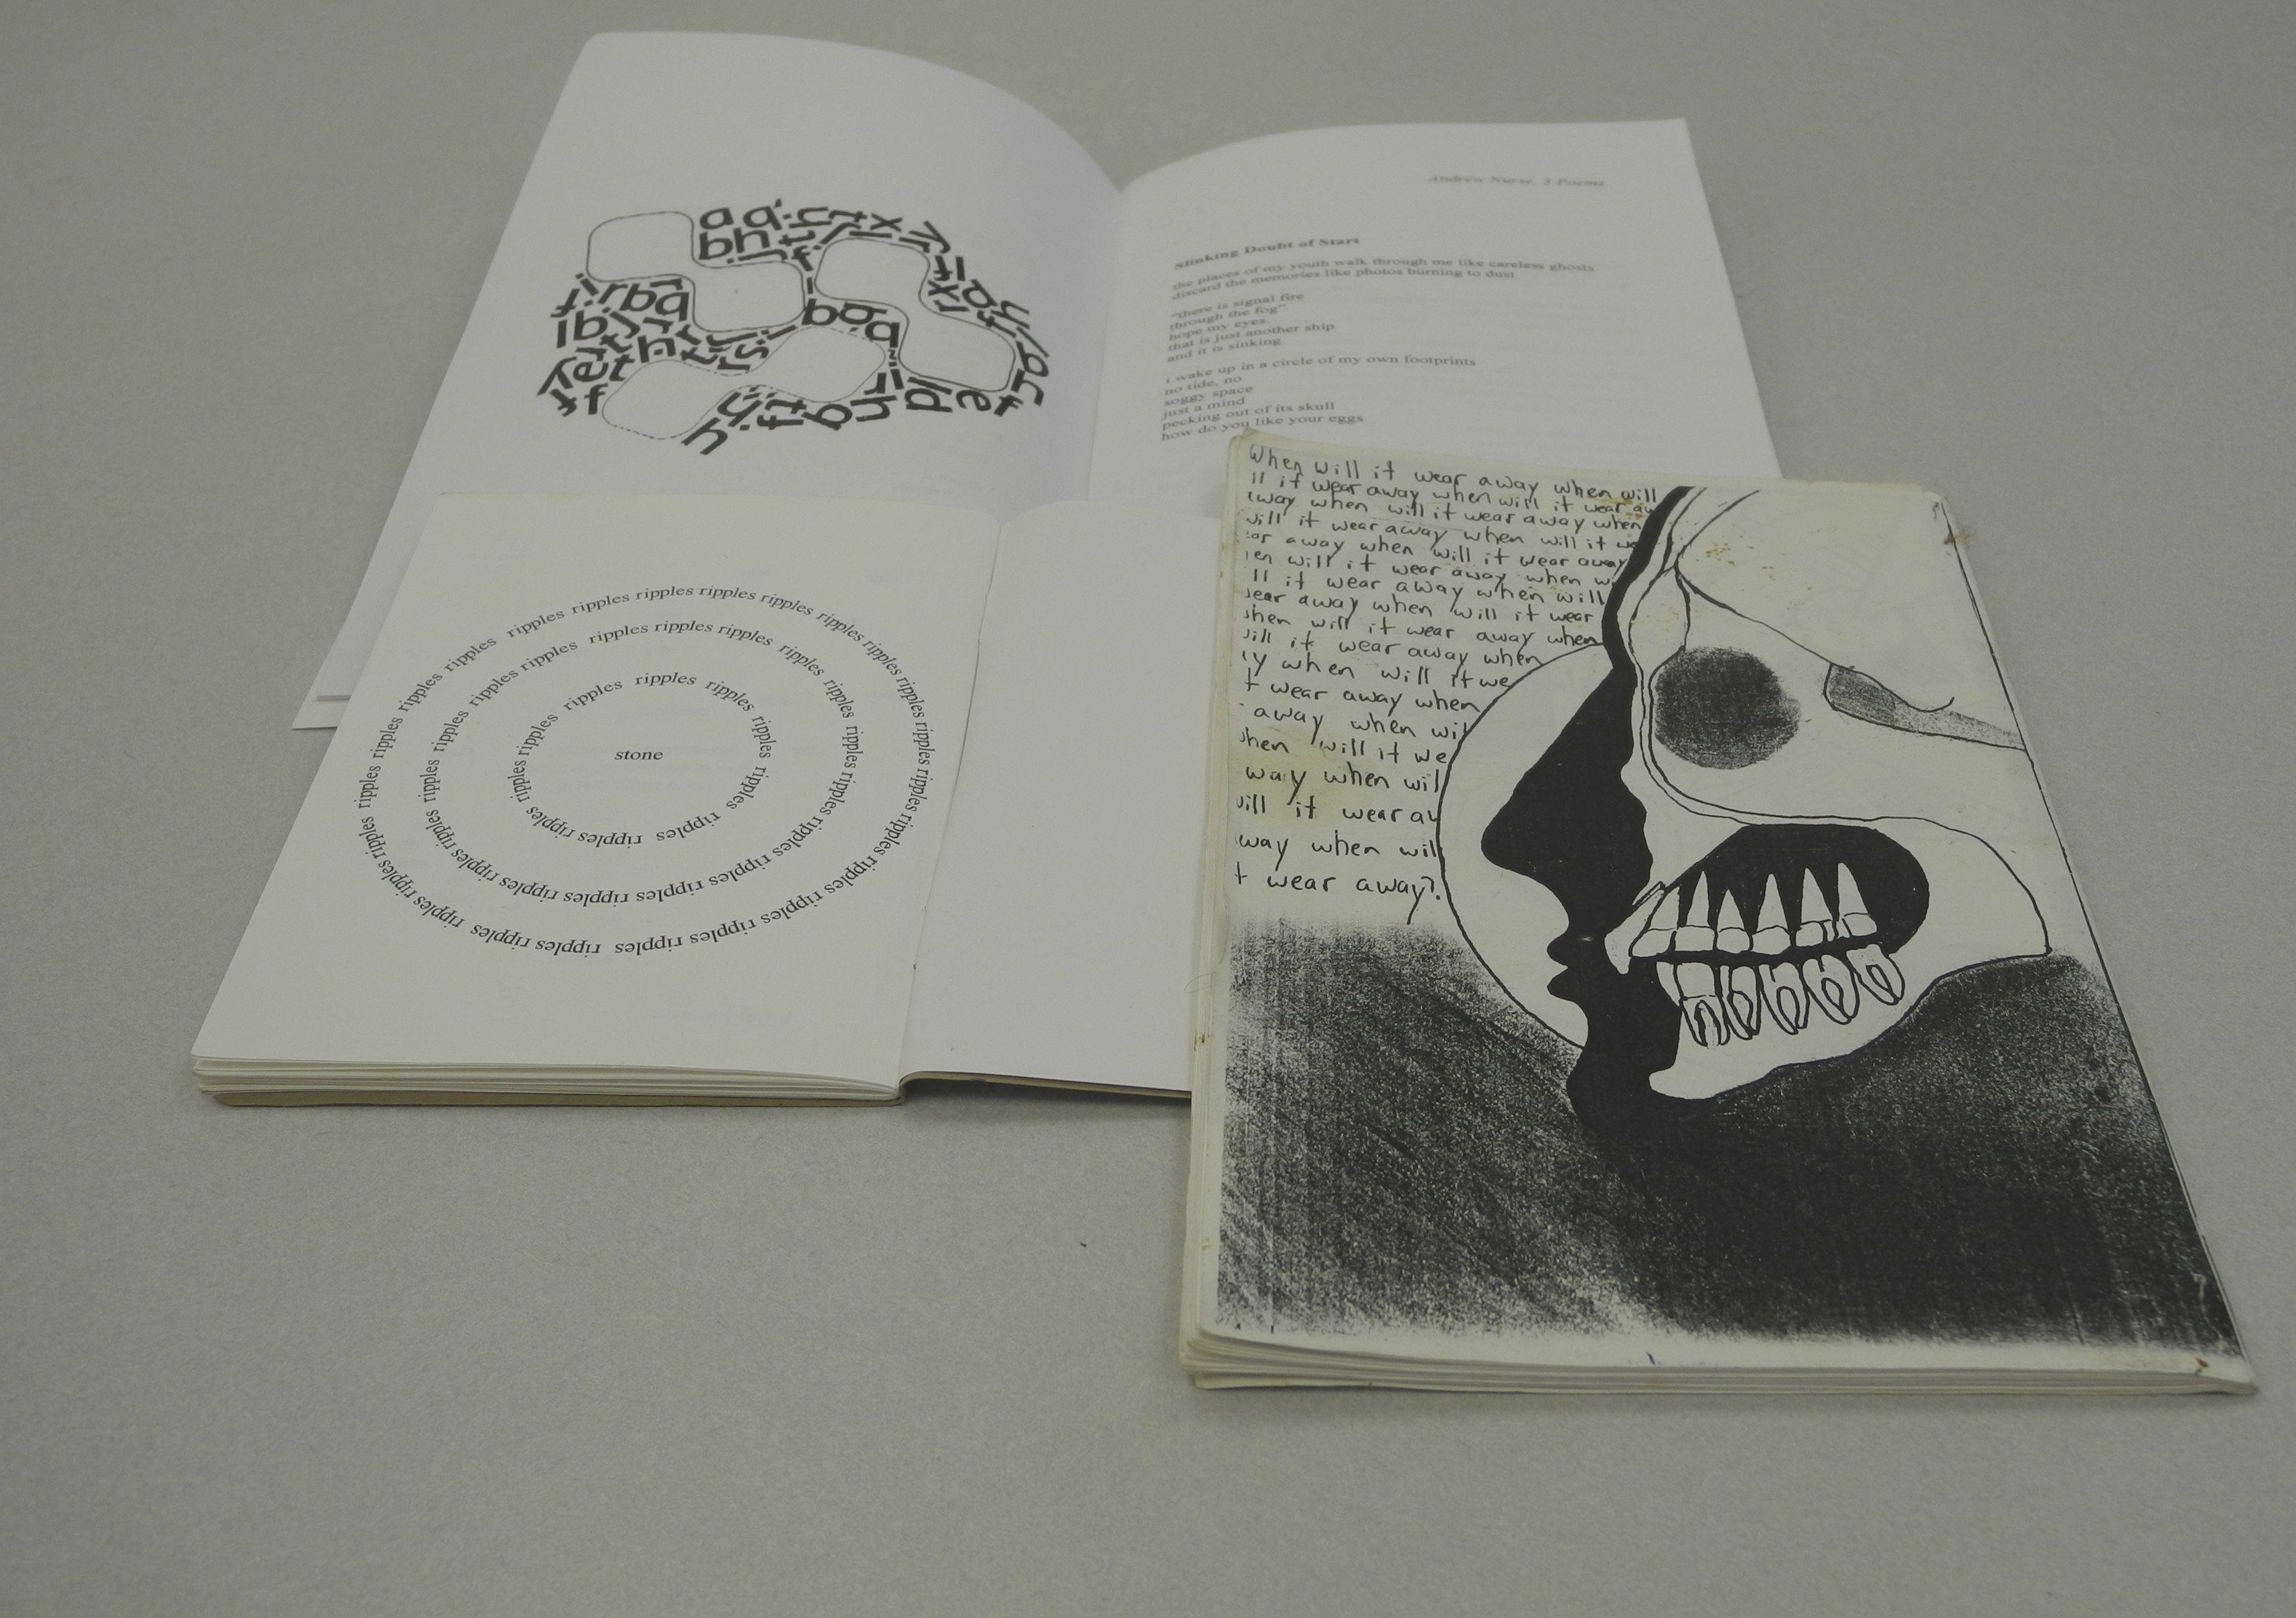 Andrew Nurse, 3 Poems
Slinking Doubt of Start
the places of my youth walk through me like careless ghosts
discard the memories like photos burning to dust
"there is signal fire
through the fog"
hope my eyes.
that is just another ship
and it is sinking
i wake up in a circle of my own footprints
no tide, no
soggy space
just a mind
pecking out of its skull
how do you like your eggs
ripples ripples ripples ripples ripples ripples ripples ripples ripples ripples ripples ripples ripples ripples ripples ripples ripples ripples ripples ripples ripples ripples ripples ripples
ripples ripples ripples ripples ripples ripples ripples ripples ripples ripples ripples ripples ripples ripples ripples ripples ripples ripples
ripples ripples ripples ripples ripples ripples ripples ripples ripples ripples ripples ripples
stone
When will it wear away when will
ll it wear away when will it wear aw
way when will it wear away when
will it wear away when will it we
ear away when will it wear away
en will it wear away when wi
ll it wear away when will
wear away when will it wear
when will it wear away when
will it wear away when
ay when will it we
t wear away when
away when wil
when will it we
way when wil
will it wear aw
way when wil
t wear away?